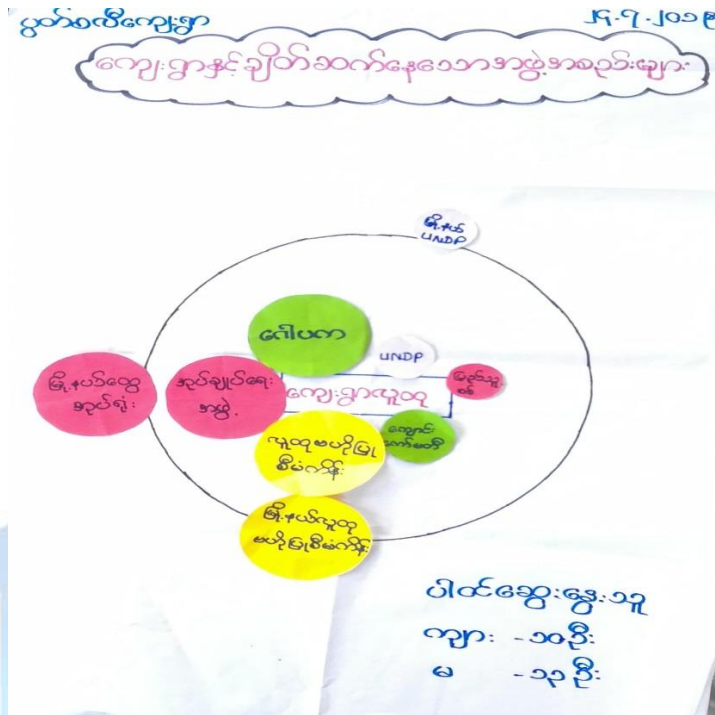 ပွတ်စလီကျေးရွာ
၂၄.၇.၂၀၁၉
ကျေးရွာနှင့်ချိတ်ဆက်နေသောအဖွဲ့အစည်းများ
မြို့နယ်
UNDP
ဂေါပက
UNDP
မြို့နယ်ထွေ
အုပ်ရုံး
အုပ်ချုပ်ရေး
အဖွဲ့
ကျေးရွာလူထု
ကျောင်း
ကော်မတီ
လူထုဗဟိုပြု
စီမံကိန်း
မြို့နယ်လူထု
ဗဟိုပြုစီမံကိန်း
ပါဝင်ဆွေးနွေးသူ
ကျား - ၁၀ဦး
မ - ၁၃ဦး